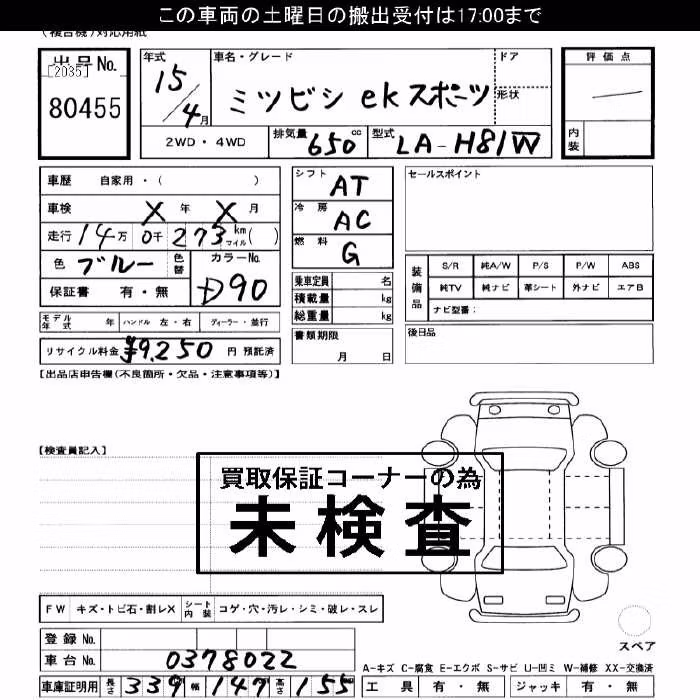 この車両の土曜日の搬出受付は17:00まで
(複合機)対応用紙
出品No. [2035] 80455
年式 15/4月
車名・グレード ミツビシ ekスポーツ
ドア 形状
評価点
内装
2WD・4WD 排気量 650cc 型式 LA-H81W
車歴 自家用・( )
車検 X年 X月
走行 14万 0千 273 km マイル( )
色 ブルー 色替 カラーNo. D90
保証書 有・無
モデル年式 年 ハンドル 左・右 ディーラー・並行
リサイクル料金 ¥9,250 円 預託済
シフト AT
冷房 AC
燃料 G
乗車定員 名
積載量 kg
総重量 kg
書類期限 月 日
セールスポイント
装備品 S/R 純A/W P/S P/W ABS
純TV 純ナビ 革シート 外ナビ エアB
ナビ型番:
後日品
【出品店申告欄(不良箇所・欠品・注意事項等)】
【検査員記入】
買取保証コーナーの為
未検査
FW キズ・トビ石・割レX シート内装 コゲ・穴・汚レ・シミ・破レ・スレ
登録No.
車台No. 0378022
車庫証明用 長さ 339 幅 147 高さ 155
スペア
A-キズ C-腐食 E-エクボ S-サビ U-凹ミ W-補修 XX-交換済
工具 有・無 ジャッキ 有・無